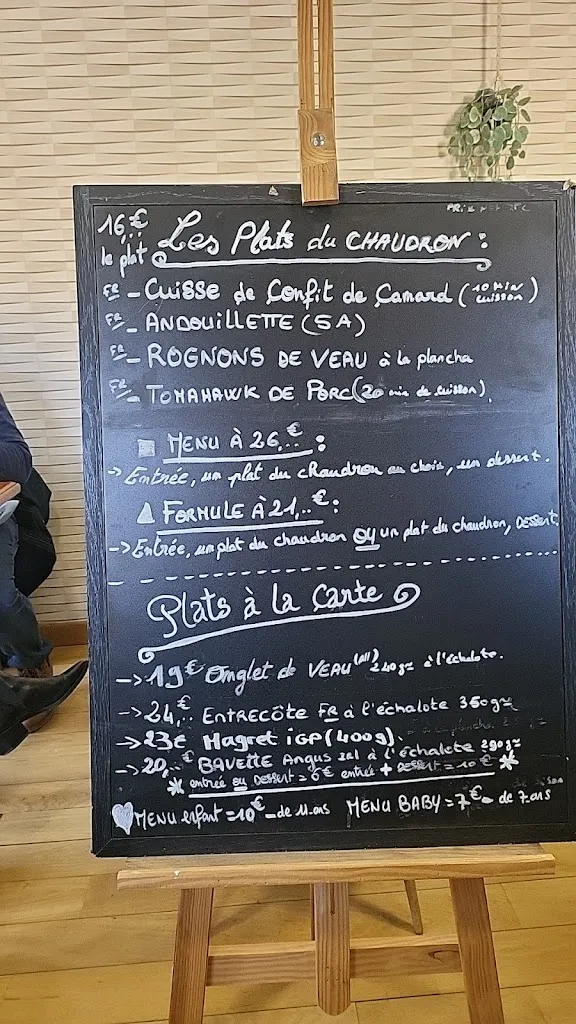 16,..€
le plat
Les Plats du CHAUDRON :
FR - CUISSE de Confit de Camard (10 MIN cuisson)
FR - ANDOUILLETTE (5A)
FR - ROGNONS DE VEAU à la plancha
FR - TOMAHAWK DE PORC (20 min de cuisson).
MENU À 26,..€ :
-> Entrée, un plat du chaudron au choix, un dessert.
FORMULE À 21,..€ :
-> Entrée, un plat du chaudron OU un plat du chaudron, DESSERT.
Plats à la Carte
-> 19€ Onglet de VEAU (All) 240gr à l'échalote.
-> 24,..€ ENTRECÔTE FR à l'échalote 350gr
-> 23€ Magret iGP (400g).
-> 20,..€ BAVETTE Angus sal à l'échalote 290gr
* entrée ou DESSERT = 6€ entrée + DESSERT = 10€ *
MENU enfant = 10€ - de 11 ans MENU BABY = 7€ - de 7 ans